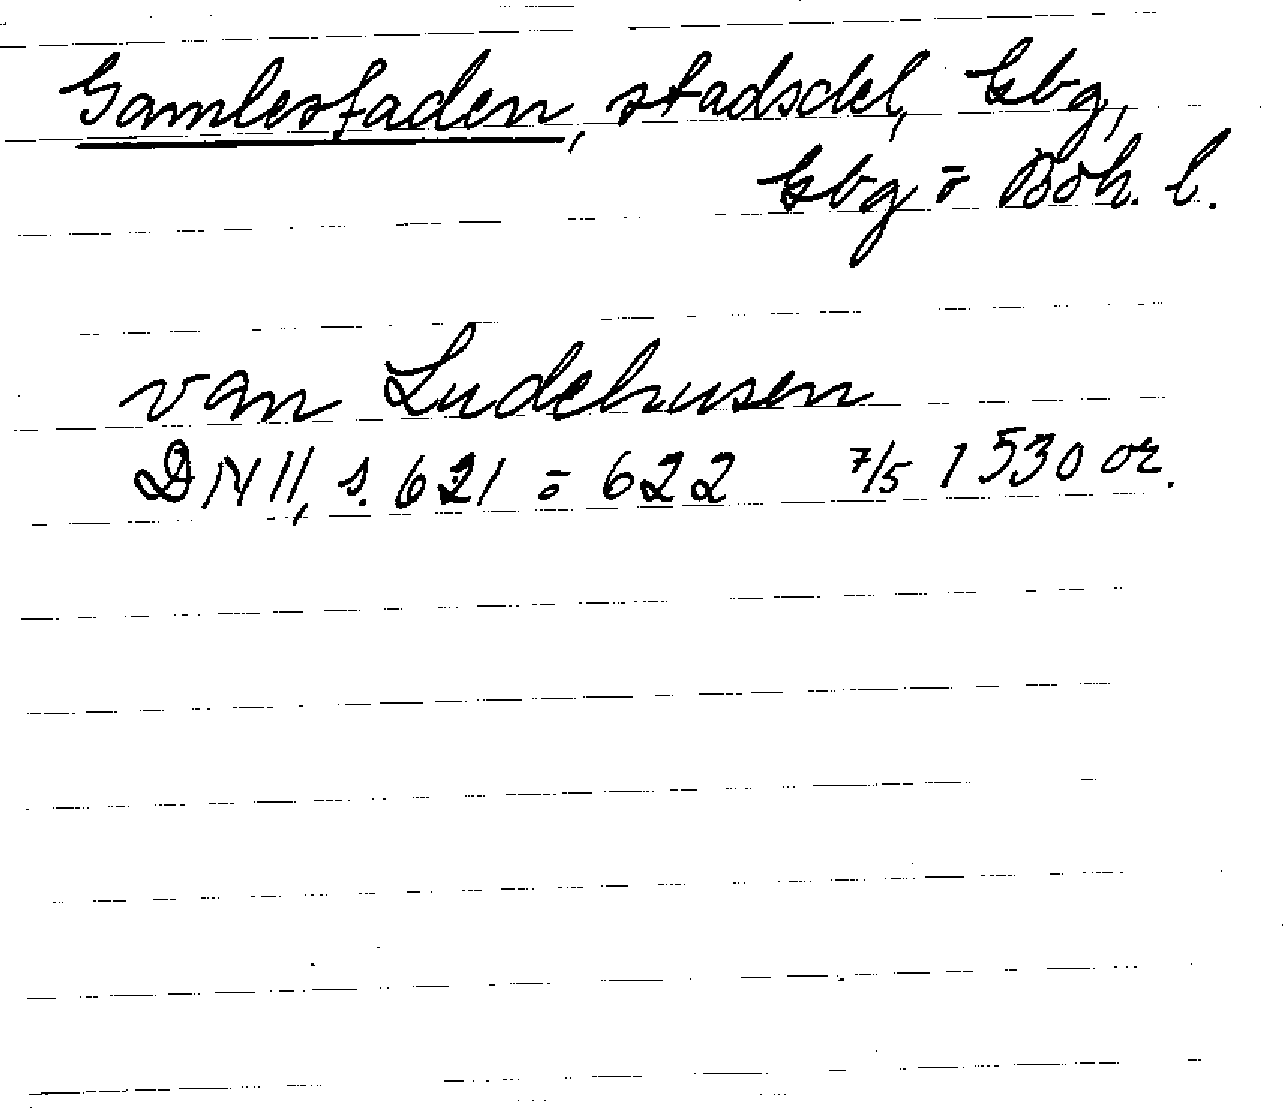 Gamlestaden, stadsdel, Gbg,
Gbg o Boh. l.
van Ludehusen
DN II, s. 621 o 622 7/5 1530 or.